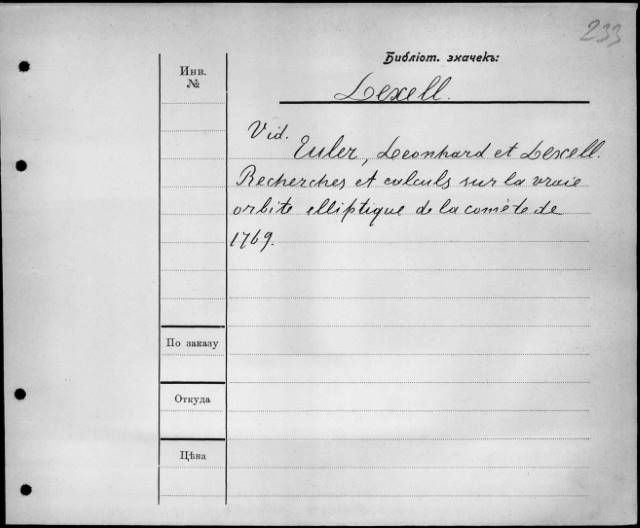 233
Библіот. значекъ:
Инв.
№
Lexell.
Vid.
Euler, Leonhard et Lexell.
Recherches et calculs sur la vraie
orbite elliptique de la comète de
1769.
По заказу
Откуда
Цѣна